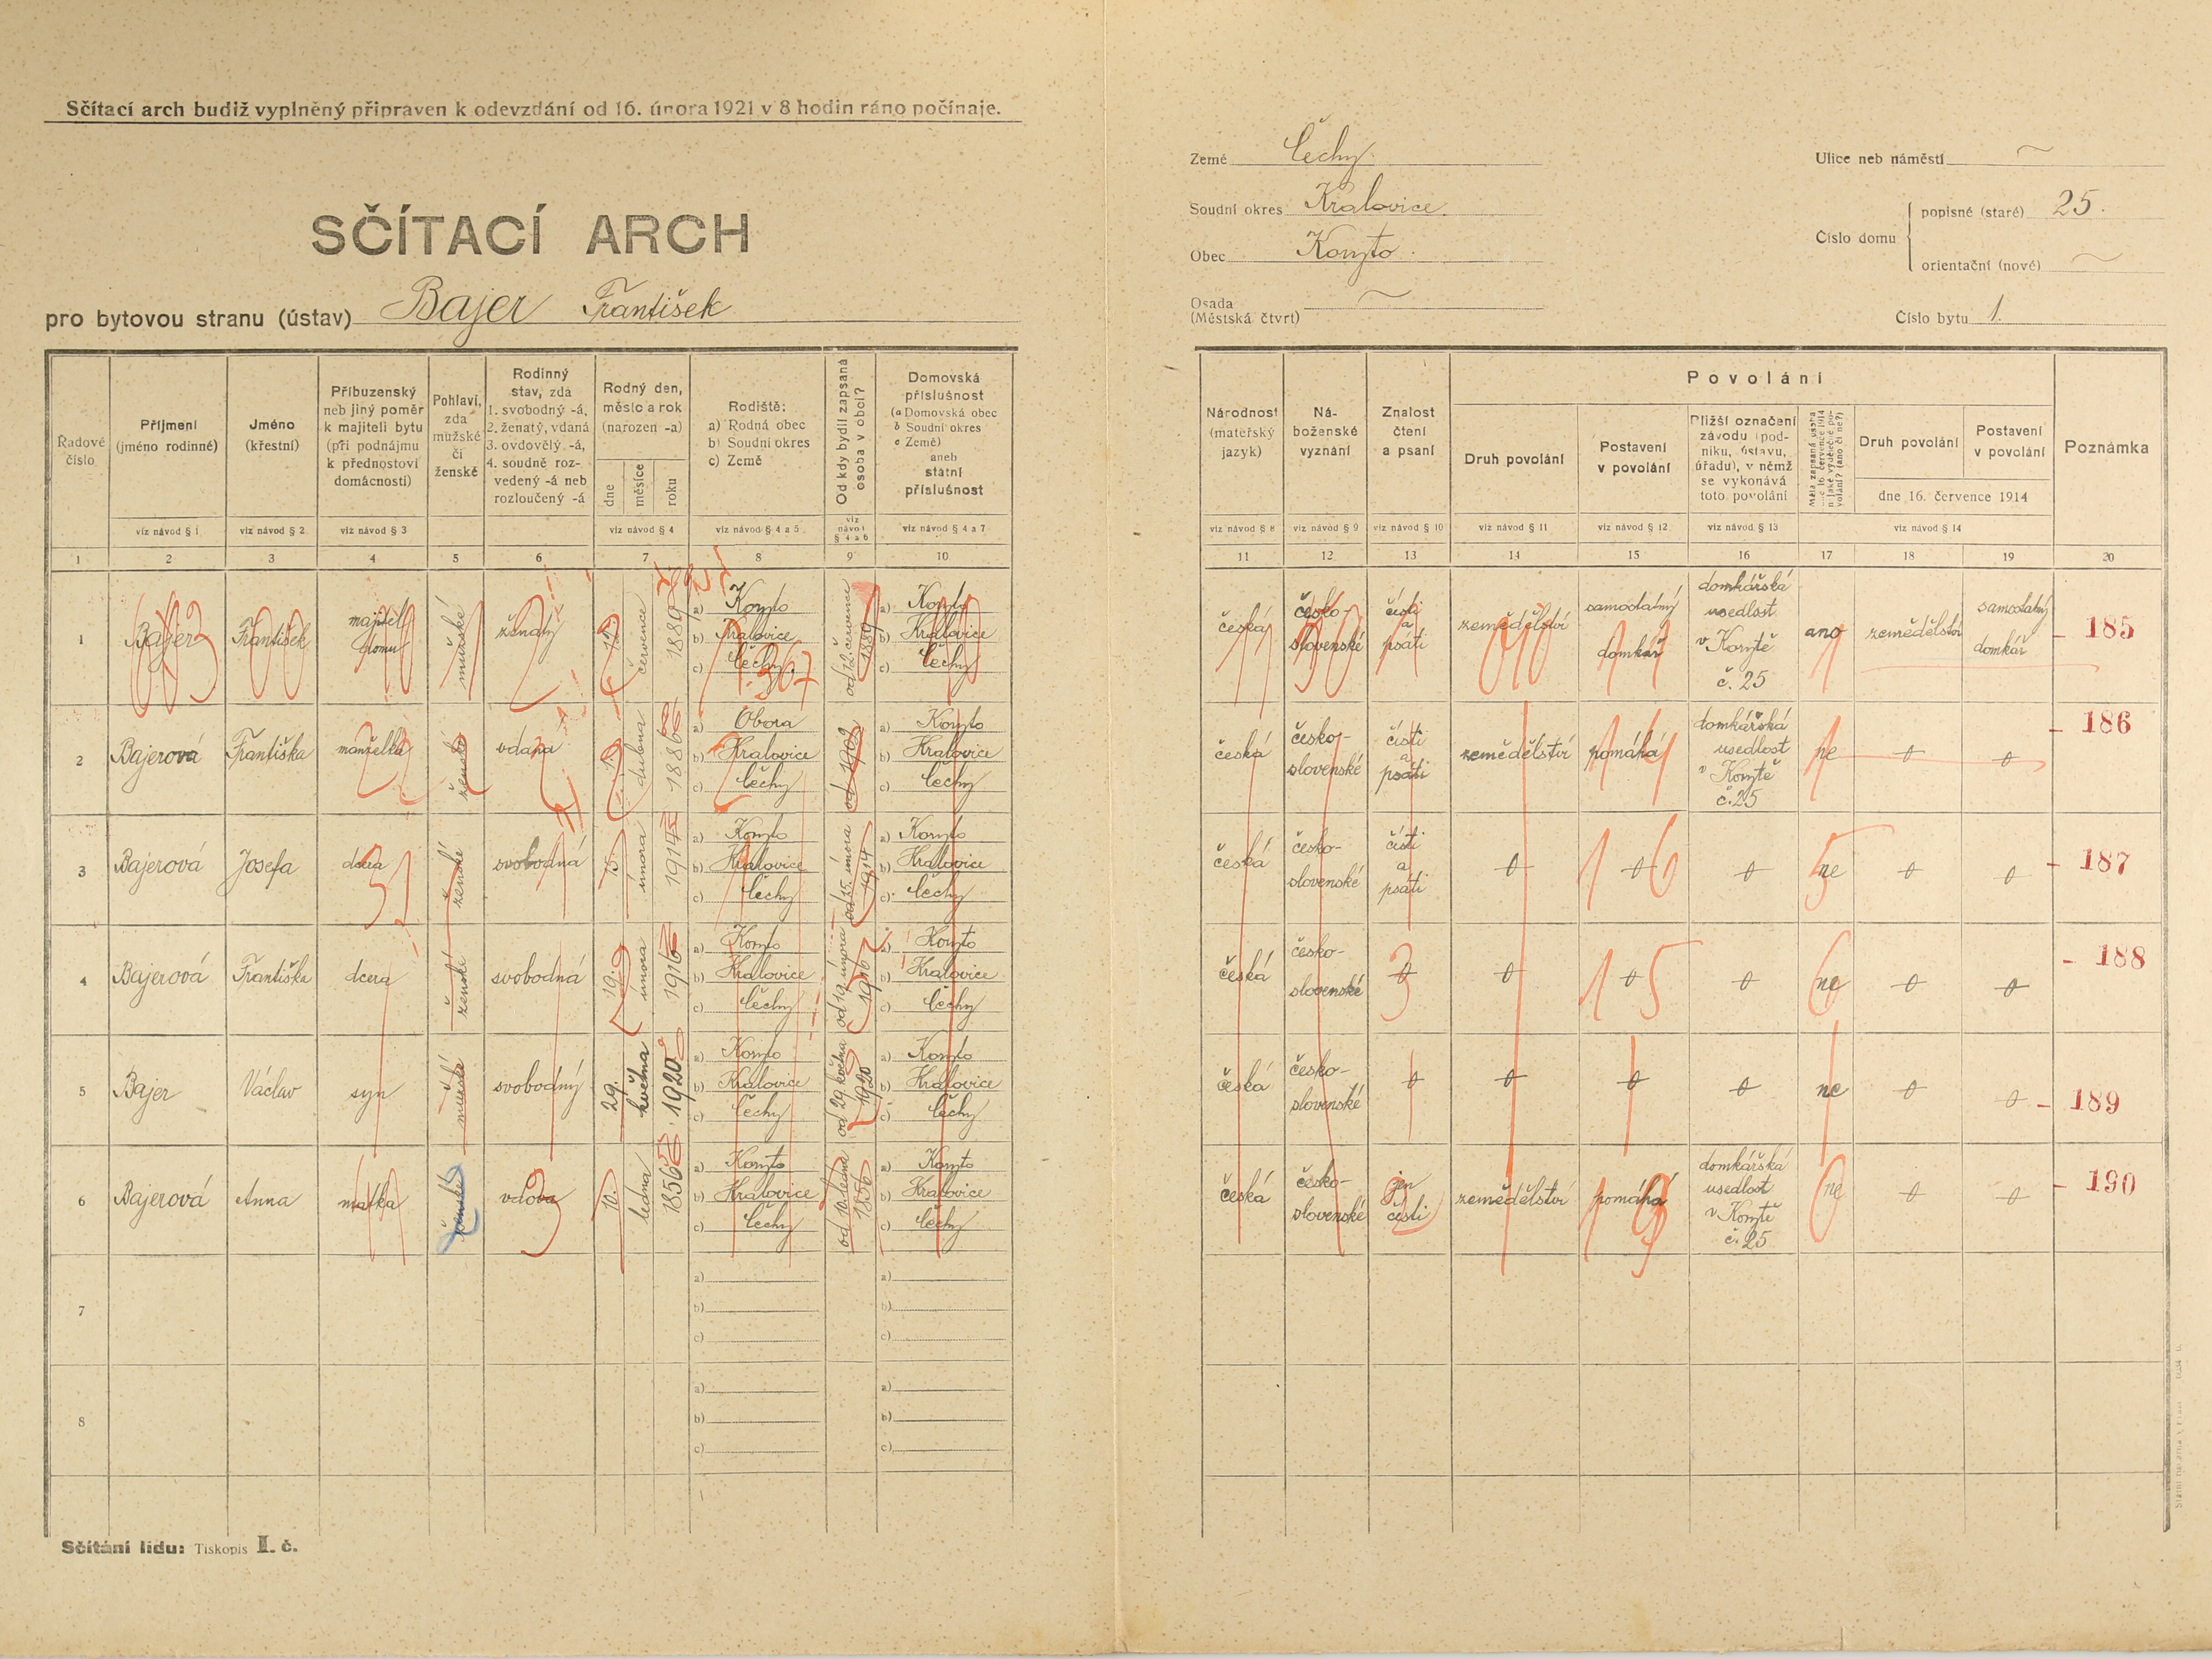 Sčítací arch budiž vyplněný připraven k odevzdání od 16. února 1921 v 8 hodin ráno počínaje.
SČÍTACÍ ARCH
pro bytovou stranu (ústav) Bajer František
Země Čechy
Soudní okres Kralovice
Obec Koryto
Osada
(Městská čtvrť)
Ulice neb náměstí
Číslo domu
popisné (staré) 25.
orientační (nové)
Číslo bytu 1.
Řadové číslo
Příjmení (jméno rodinné)
Jméno (křestní)
Příbuzenský neb jiný poměr k majiteli bytu (při podnájmu k přednostovi domácnosti)
Pohlaví, zda mužské či ženské
Rodinný stav, zda 1. svobodný -á, 2. ženatý, vdaná 3. ovdovělý -á, 4. soudně rozvedený -á neb rozloučený -á
Rodný den, měsíc a rok (narozen -a)
dne měsíce roku
Rodiště: a) Rodná obec b) Soudní okres c) Země
Od kdy bydlí zapsaná osoba v obci?
Domovská příslušnost (a Domovská obec b Soudní okres c Země) aneb státní příslušnost
Národnost (mateřský jazyk)
Náboženské vyznání
Znalost čtení a psaní
Povolání
Druh povolání
Postavení v povolání
Bližší označení závodu (podniku, ústavu, úřadu), v němž se vykonává toto povolání
Druh povolání
Postavení v povolání
dne 16. července 1914
Poznámka
viz návod § 1 viz návod § 2 viz návod § 3 viz návod § 4 viz návod § 4 a 5 viz návod § 4 a 6 viz návod § 4 a 7
viz návod § 8 viz návod § 9 viz návod § 10 viz návod § 11 viz návod § 12 viz návod § 13 viz návod § 14
1 2 3 4 5 6 7 8 9 10 11 12 13 14 15 16 17 18 19 20
1 Bajer František majitel domu mužské ženatý 12. července 1889 a) Koryto b) Kralovice c) Čechy od 12. července 1889 a) Koryto b) Kralovice c) Čechy
česká česko-slovenské čísti a psáti zemědělství samostatný domkář domkářská usedlost v Korytě č. 25 ano zemědělství samostatný domkář - 185
2 Bajerová Františka manželka ženské vdaná dubna 1886 a) Obora b) Kralovice c) Čechy a) Koryto b) Kralovice c) Čechy
česká česko-slovenské čísti a psáti zemědělství pomáhá domkářská usedlost v Korytě č. 25 ne 0 0 - 186
3 Bajerová Josefa dcera ženské svobodná 15. února 1914 a) Koryto b) Kralovice c) Čechy od 15. února 1914 a) Koryto b) Kralovice c) Čechy
česká česko-slovenské čísti a psáti 0 0 0 ne 0 0 - 187
4 Bajerová Františka dcera ženské svobodná 19. února 1916 a) Koryto b) Kralovice c) Čechy od 19. února 1916 a) Koryto b) Kralovice c) Čechy
česká česko-slovenské 0 0 0 0 ne 0 0 - 188
5 Bajer Václav syn mužské svobodný 29. května 1920 a) Koryto b) Kralovice c) Čechy od 29. května 1920 a) Koryto b) Kralovice c) Čechy
česká česko-slovenské 0 0 0 0 ne 0 0 - 189
6 Bajerová Anna matka ženské vdova 10. ledna 1856 a) Koryto b) Kralovice c) Čechy od 10. ledna 1856 a) Koryto b) Kralovice c) Čechy
česká česko-slovenské jen čísti zemědělství pomáhá domkářská usedlost v Korytě č. 25 ne 0 0 - 190
7 a) b) c) a) b) c)
8 a) b) c) a) b) c)
Sčítání lidu: Tiskopis I. č.